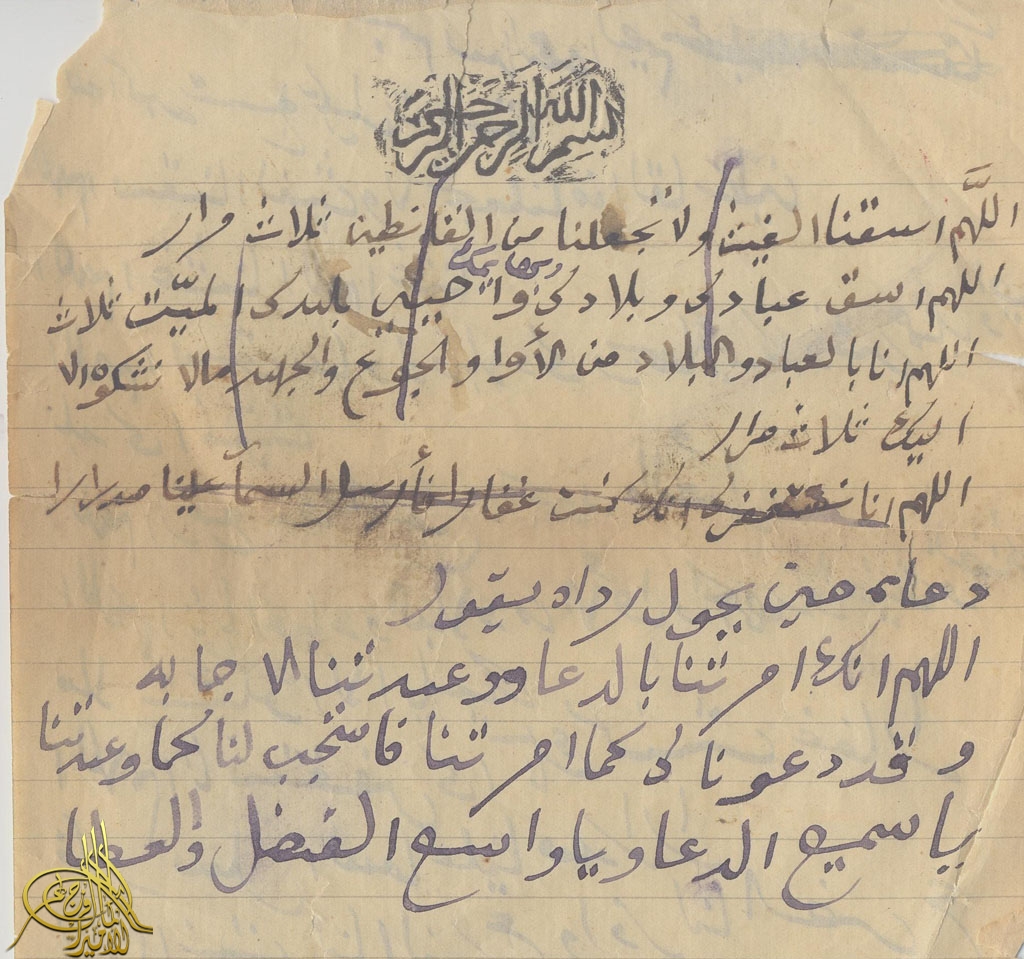 بسم الله الرحمن الرحيم
اللّهم اسقنا الغيث ولا تجعلنا من القانطين ثلاث مرار
اللهم اسق عبادك وبلادك وبهايمك واحيي بلدك الميّت ثلاث
اللهم ان بالعباد والبلاد من الأوا والجوع والجهد مالا نشكوه الا
اليك ثلاث مرار
اللهم انا نستغفرك انك كنت غفارا فأرسل السما علينا مدرارا
دعايه حين يحول رداه يقول
اللهم انك امرتنا بالدعا ووعدتنا الاجابه
وقد دعوناك كما امرتنا فاستجب لنا كما وعدتنا
يا سميع الدعا ويا واسع الفضل والعطا